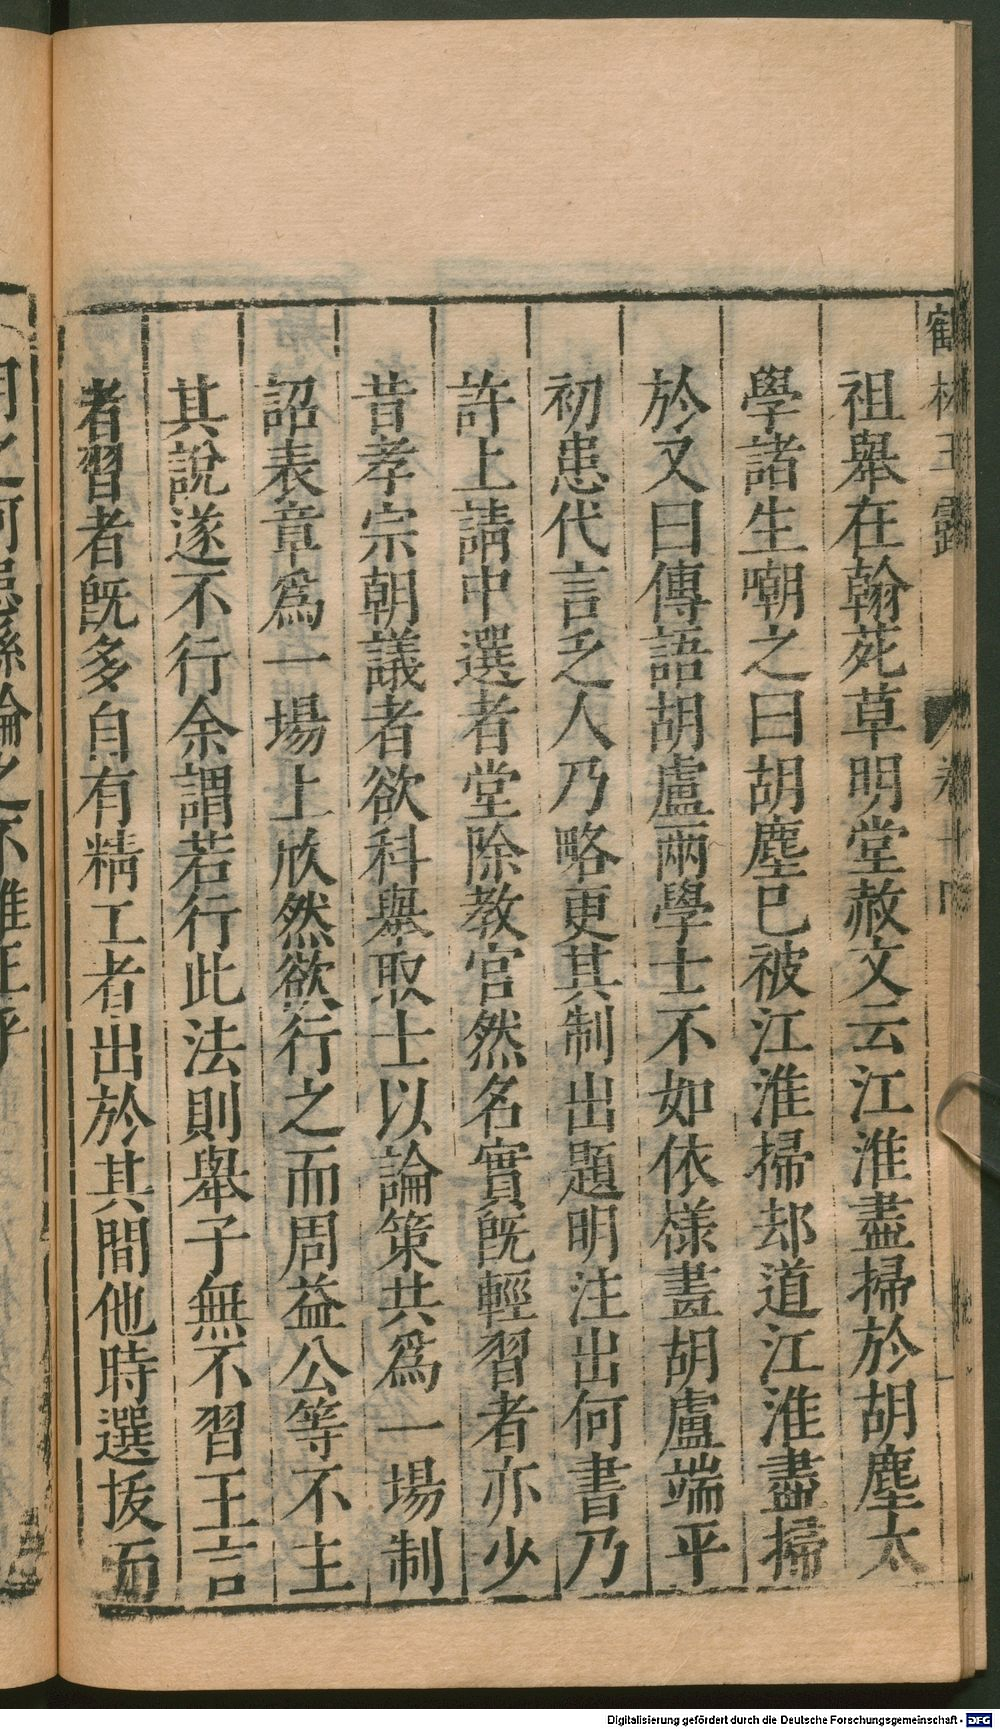 鶴林玉露 卷十四
祖舉在翰苑草明堂赦文云江淮盡掃於胡塵太
學諸生嘲之曰胡塵已被江淮掃却道江淮盡掃
於又曰傳語胡盧兩學士不如依樣畫胡盧端平
初患代言乏人乃略更其制出題明注出何書乃
許上請中選者堂除教官然名實旣輕習者亦少
昔孝宗朝議者欲科舉取士以論策共爲一場制
詔表章爲一場上欣然欲行之而周益公等不主
其說遂不行余謂若行此法則舉子無不習王言
者習者旣多自有精工者出於其間他時選拔而
用之何患絲綸之不雅正乎
Digitalisierung gefördert durch die Deutsche Forschungsgemeinschaft - DFG